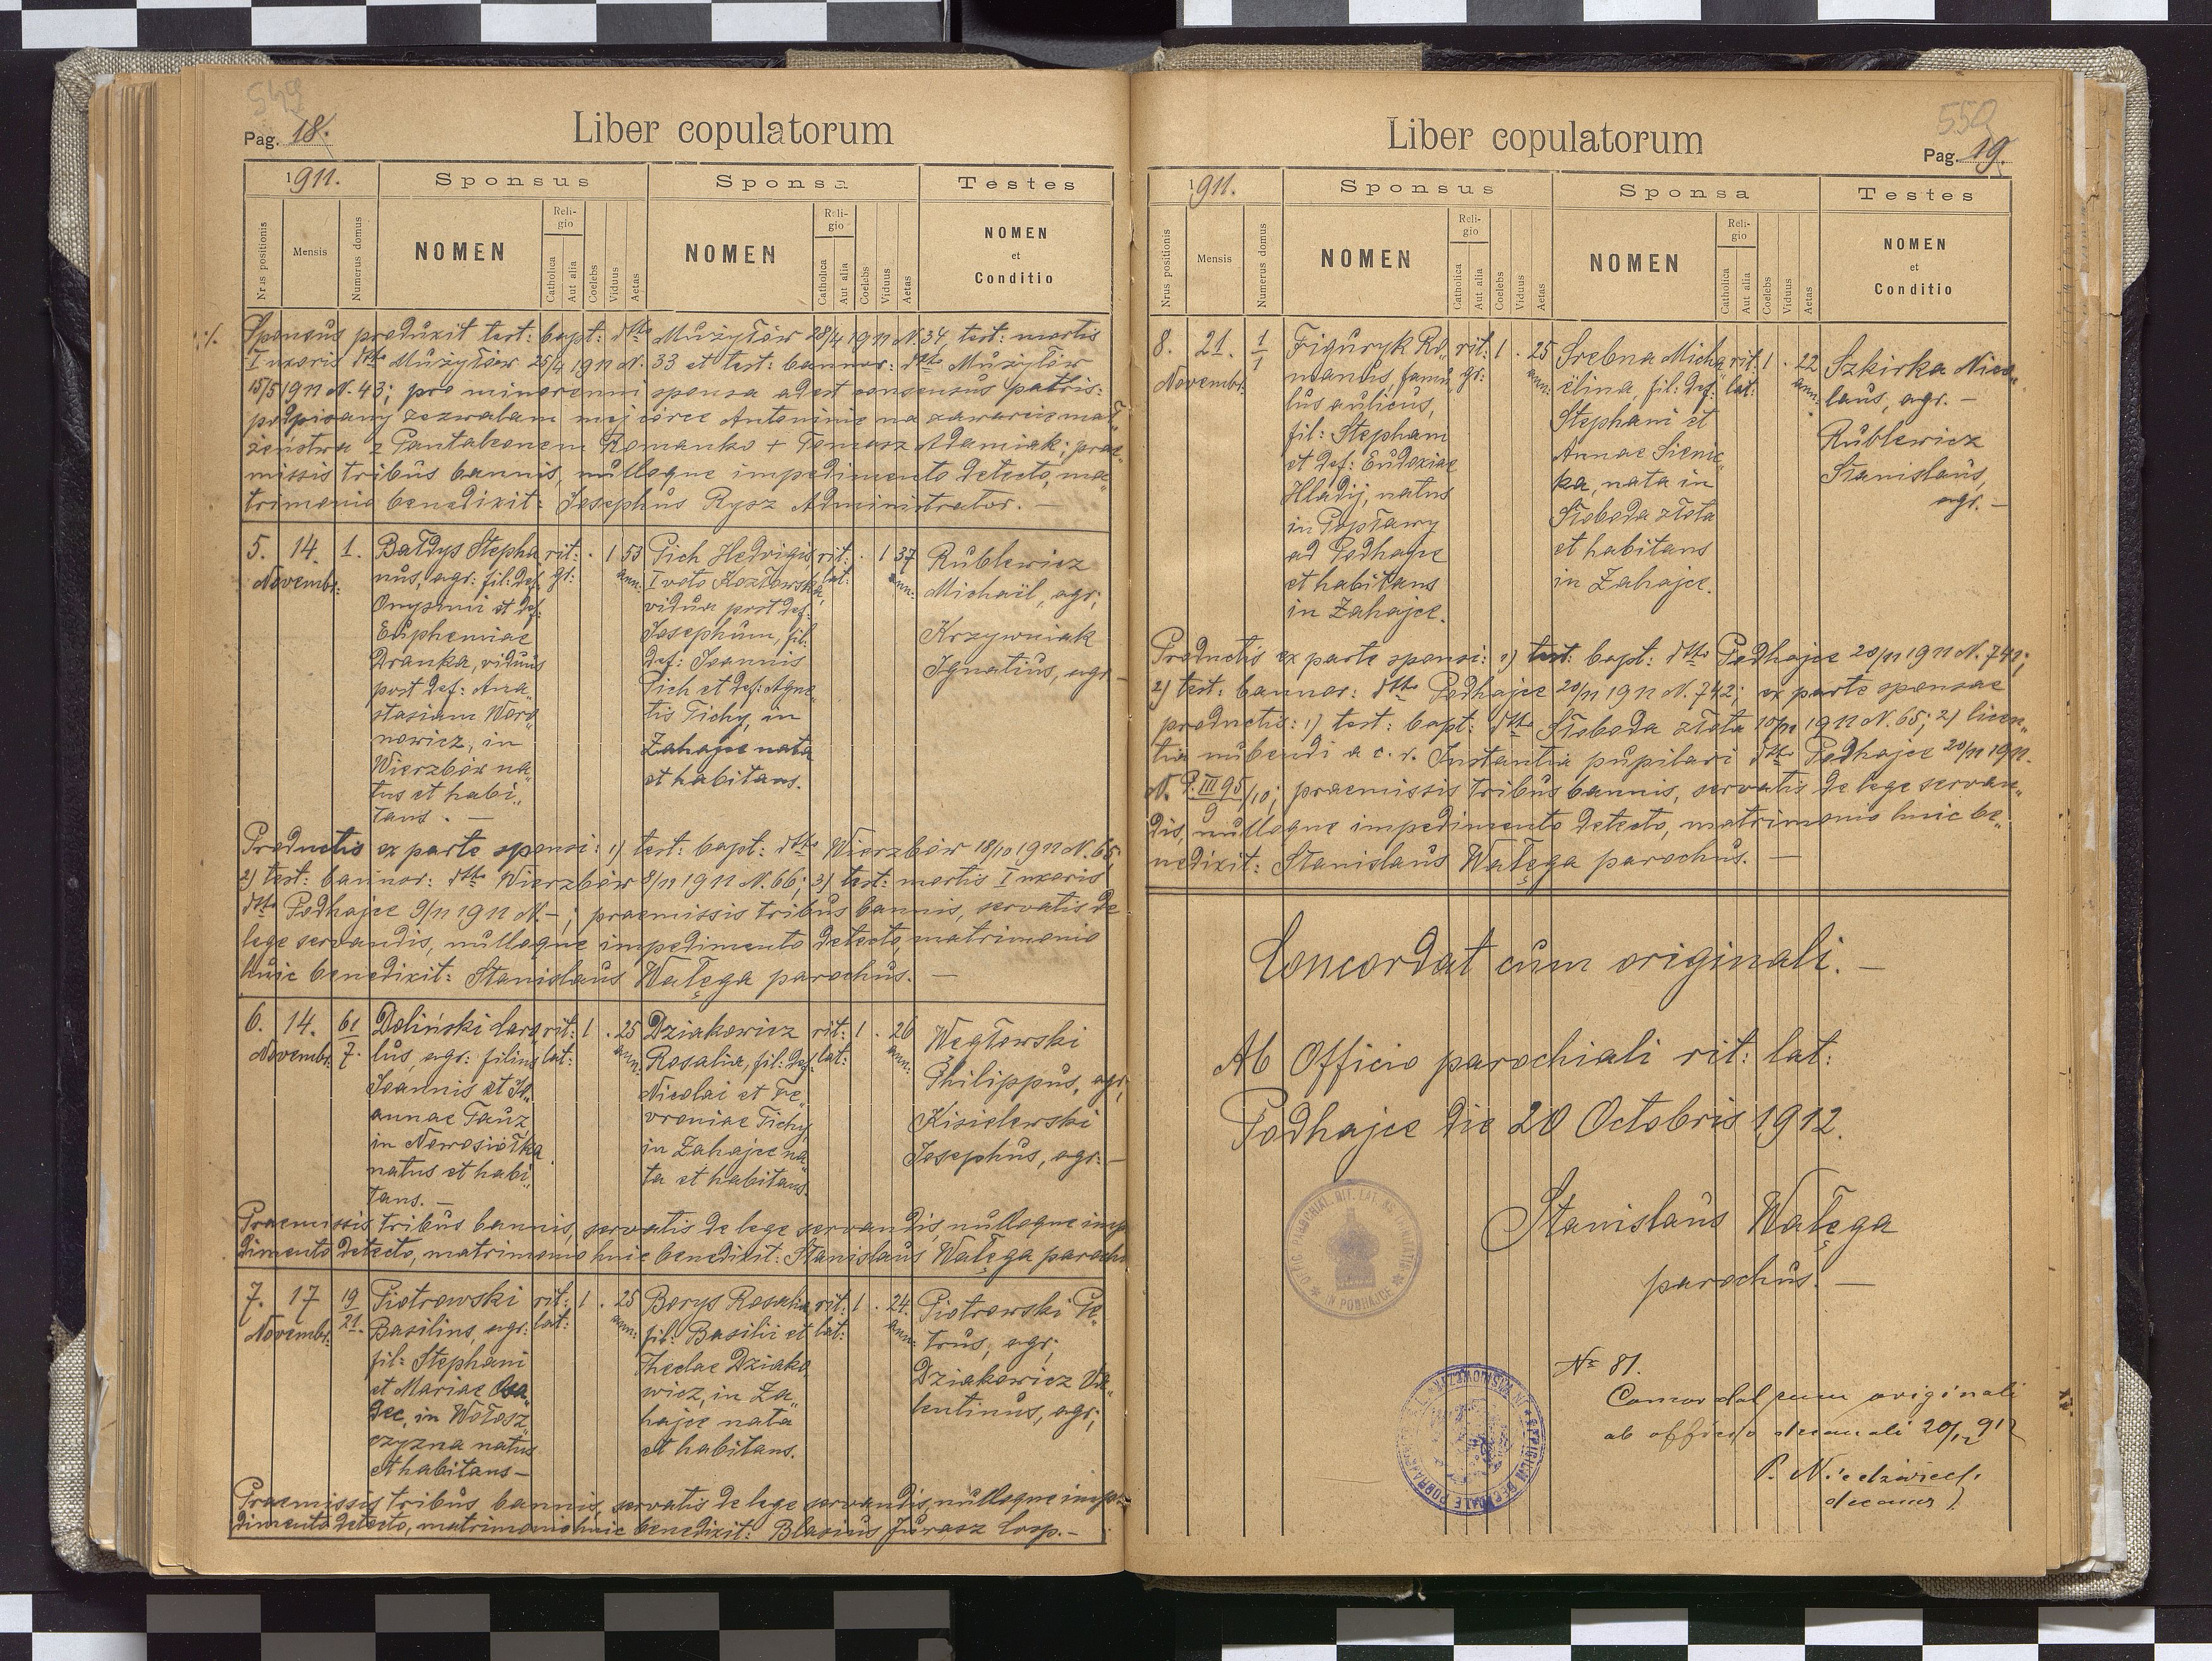 549
Pag. 18.
Liber copulatorum
1911.
Sponsus
Sponsa
Testes
Nrus positionis
Mensis
Numerus domus
NOMEN
Reli-
gio
Catholica
Aut alia
Coelebs
Viduus
Aetas
NOMEN
Reli-
gio
Catholica
Aut alia
Coelebs
Viduus
Aetas
NOMEN
et
Conditio
Sponsus produxit test: bapt: dtto Mużyłów 28/4 1911 N. 34, test: mortis
I uxoris dtto Mużyłów 25/4 1911 N. 33 et test: bannor: dtto Mużyłów
15/5 1911 N. 43; pro minorenni sponsa adest consensus patris:
podpisany zezwalam mej córce Antoninie na zawarcie mał„
żeństwa z Pantaleonem Romanko + Tomasz Adamiak; prae„
missis tribus bannis, nulloque impedimento detecto, ma„
trimonio benedixit: Josephus Rysz Administrator. —
5. 14. 1.
Novembr:
Bałdys Stepha
nus, agr: fil: def:
Onyśmii et def:
Euphemiae
Dranka, viduus
post def: Ana„
stasiam Woro„
nowicz, in
Wierzbów na„
tus et habi„
tans. —
rit: . 1 53
gr: ann:
Pich Hedvigis,
I voto Kozłowska,
vidua post def:
Josephum, fil:
def: Joannis
Pich et def: Agne„
tis Tichy, in
Zahajce nata
et habitans.
rit: . 1 37
lat: ann:
Rublewicz
Michaël, agr;
Krzywniak
Ignatius, agr—
Productis ex parte sponsi: 1) test: bapt: dtto Wierzbów 18/10 1911 N. 65;
2) test: bannor: dtto Wierzbów 8/11 1911 N. 66; 3) test: mortis I uxoris
dtto Podhajce 9/11 1911 N.—; praemissis tribus bannis, servatis de
lege servandis, nulloque impedimento detecto, matrimonio
huic benedixit: Stanislaus Wałęga parochus. —
6. 14. 61/7.
Novembr:
Doliński Caro„
lus, agr: filius
Joannis et Jo„
annae Tauz,
in Nowosiółka
natus et habi„
tans. —
rit: 1 . 25
lat: ann:
Dziakowicz
Rosalia, fil: def:
Nicolai et Fe„
vroniae Tichy,
in Zahajce na„
ta et habitans.
rit: 1 . 26
lat: ann:
Węgłowski
Philippus, agr;
Kisielewski
Josephus, agr: —
Praemissis tribus bannis, servatis de lege servandis, nulloque impe
dimento detecto, matrimonio huic benedixit: Stanislaus Wałęga paroch
7. 17 19/21.
Novembr:
Piotrowski
Basilius, agr:
fil: Stephani
et Mariae Osa„
dec, in Wołosz„
czyzna natus
et habitans —
rit: 1 . 25
lat: ann:
Borys Rosalia
fil: Basilii et
Theclae Dziako
wicz, in Za„
hajce nata
et habitans.
rit: 1 . 24.
lat: ann:
Piotrowski Pe„
trus, agr;
Dziakowicz Va„
lentinus, agr;
Praemissis tribus, bannis, servatis de lege servandis, nulloque impe
dimento detecto, matrimonio huic benedixit: Blasius Jurasz Coop. —
550
Liber copulatorum
Pag. 19.
1911.
Sponsus
Sponsa
Testes
Nrus positionis
Mensis
Numerus domus
NOMEN
Reli-
gio
Catholica
Aut alia
Coelebs
Viduus
Aetas
NOMEN
Reli-
gio
Catholica
Aut alia
Coelebs
Viduus
Aetas
NOMEN
et
Conditio
8. 21. 1/1
Novembr:
Figuryk Ro„
manus, famu„
lus aulicus,
fil: Stephani
et def: Eudoxiae
Hladij, natus
in Popławy
ad Podhajce
et habitans
in Zahajce.
rit: 1 . 25
gr: ann:
Srebna Micha„
ëlina, fil: def:
Stephani et
Annae Sienic„
ka, nata in
Słoboda złota
et habitans
in Zahajce.
rit: 1 . 22
lat: ann:
Szkirka Nico„
laus, agr. —
Rublewicz
Stanislaus,
agr. —
Productis ex parte sponsi: 1) test: bapt: dtto Podhajce 20/11 1911 N. 741;
2) test: bannor: dtto Podhajce 20/11 1911 N. 742; ex parte sponsae
productis: 1) test: bapt: dtto Słoboda złota 10/11 1911 N. 65; 2) licen„
tia nubendi a c. r. Instantia pupilari dtto Podhajce 20/11 1911.
N. P. III 95/9 /10; praemissis tribus bannis, servatis de lege servan„
dis, nulloque impedimento detecto, matrimonio huic be„
nedixit: Stanislaus Wałęga parochus. —
Concordat cum originali. —
Ab Officio parochiali rit: lat:
Podhajce die 20 Octobris 1912.
Stanislaus Wałęga
parochus. —
OFFIC. PAROCHIAL. RIT. LAT. AD SS. TRINITATIS
IN PODHAJCE
Nr 81.
Concordat cum originali
ab officio decanali 20/12 912
P. Niedzwiecki
decanus